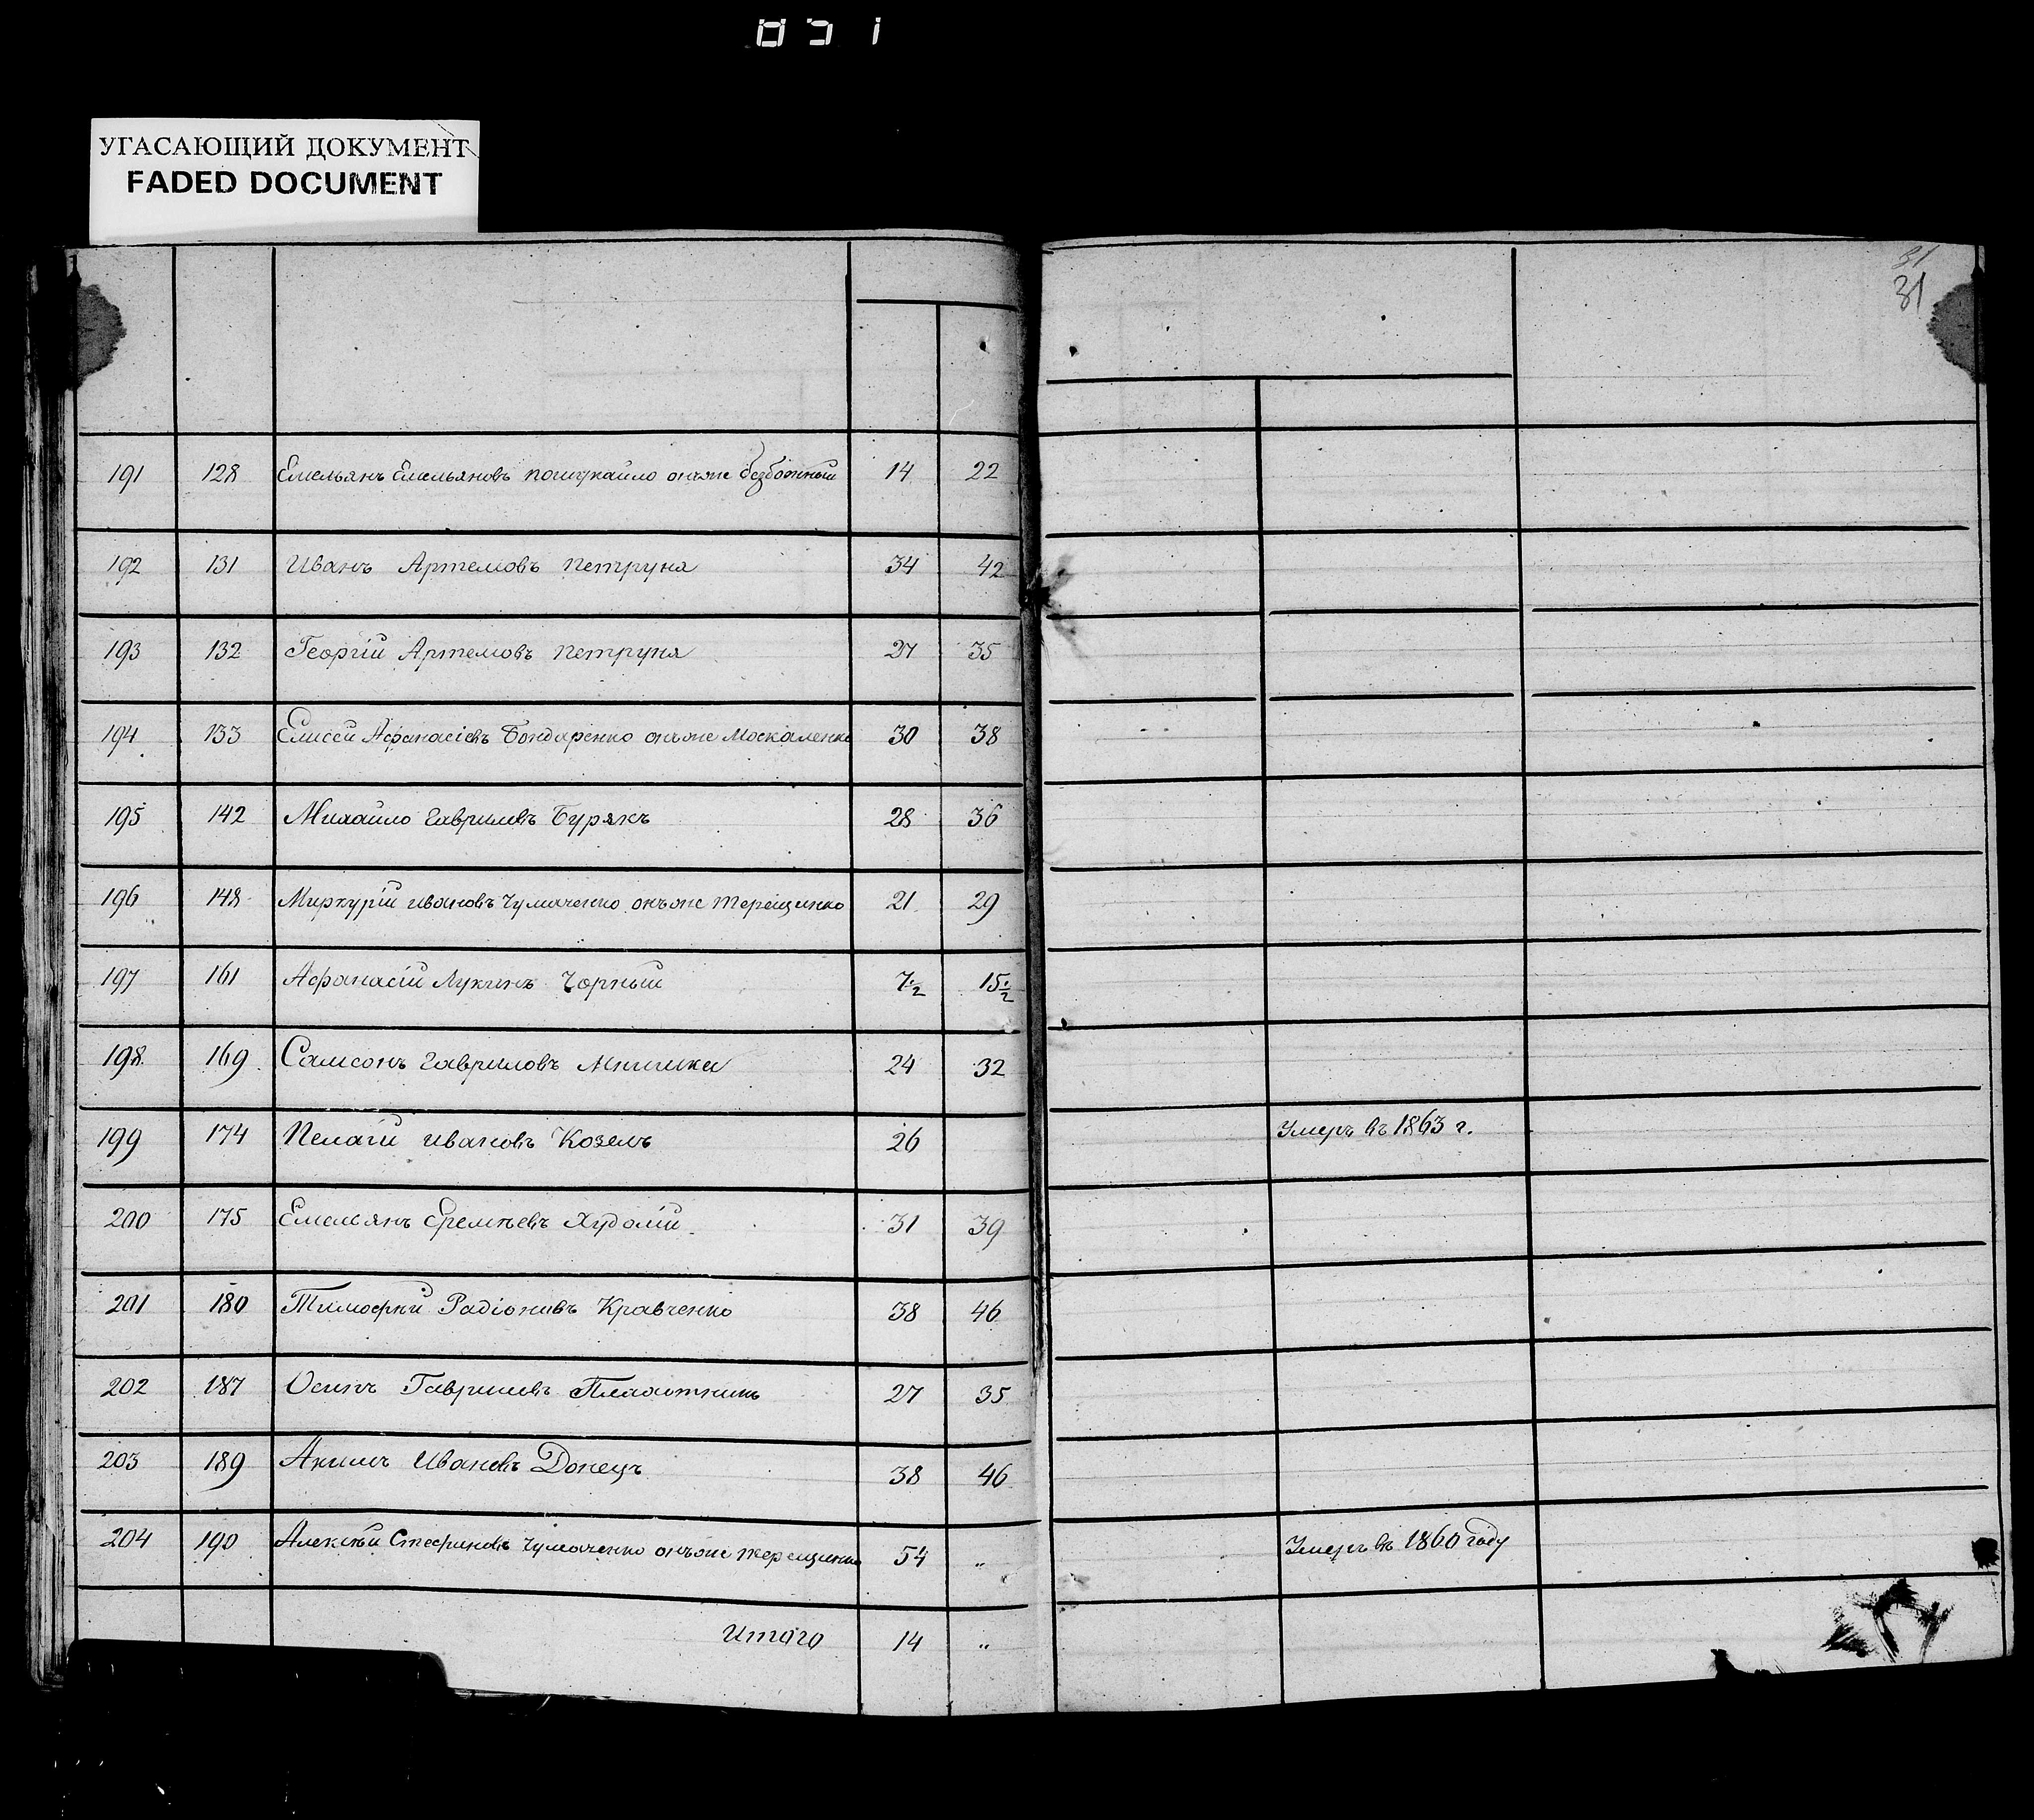 051
УГАСАЮЩИЙ ДОКУМЕНТ
FADED DOCUMENT
31
31
191 128 Емельянъ Емельяновъ Пошукайло онъже Безбожный 14 22
192 131 Иванъ Артемовъ Петруня 34 42
193 132 Георгій Артемовъ Петруня 27 35
194 133 Елисей Афанасіевъ Бондаренко онъже Москаленко 30 38
195 142 Михайло Гавриловъ Бурякъ 28 36
196 148 Миркурій Ивановъ Чумаченко онъже Терещенко 21 29
197 161 Афанасій Лукинъ Чорный 7½ 15½
198 169 Самсонъ Гавриловъ 24 32
199 174 Пелагій Ивановъ Козелъ 26 Умеръ въ 1863 г.
200 175 Емельянъ Еремѣевъ Худолій 31 39
201 180 Тимофѣй Радіоновъ Кравченко 38 46
202 187 Осипъ Гавриловъ Плахотникъ 27 35
203 189 Акимъ Ивановъ Донецъ 38 46
204 190 Алексѣй Стефановъ Чумаченко онъже Терещенко 54 „ Умеръ въ 1860 году
Итого 14 „